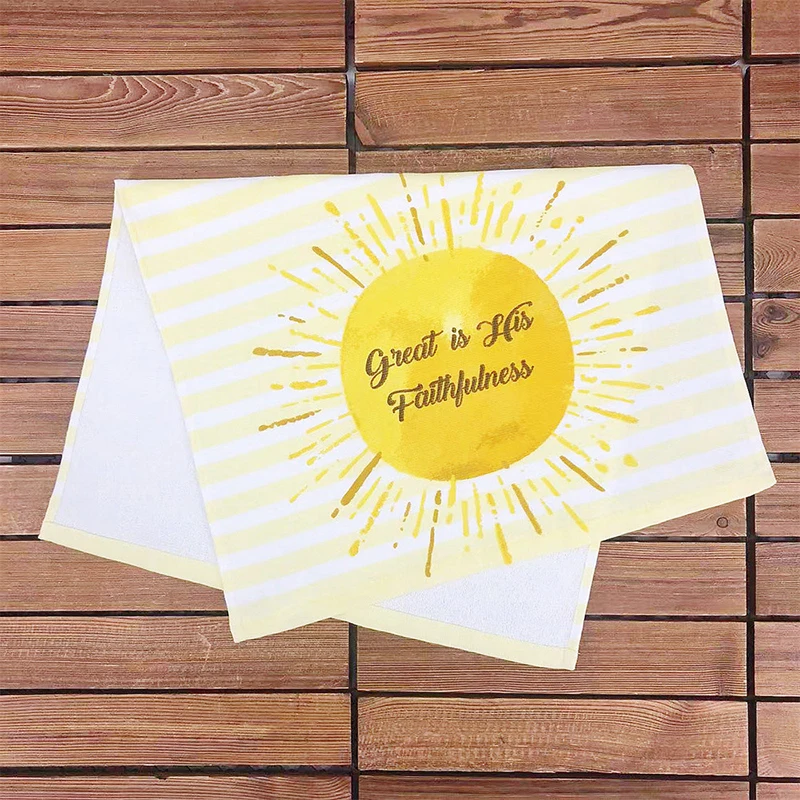 Great is His
Faithfulness